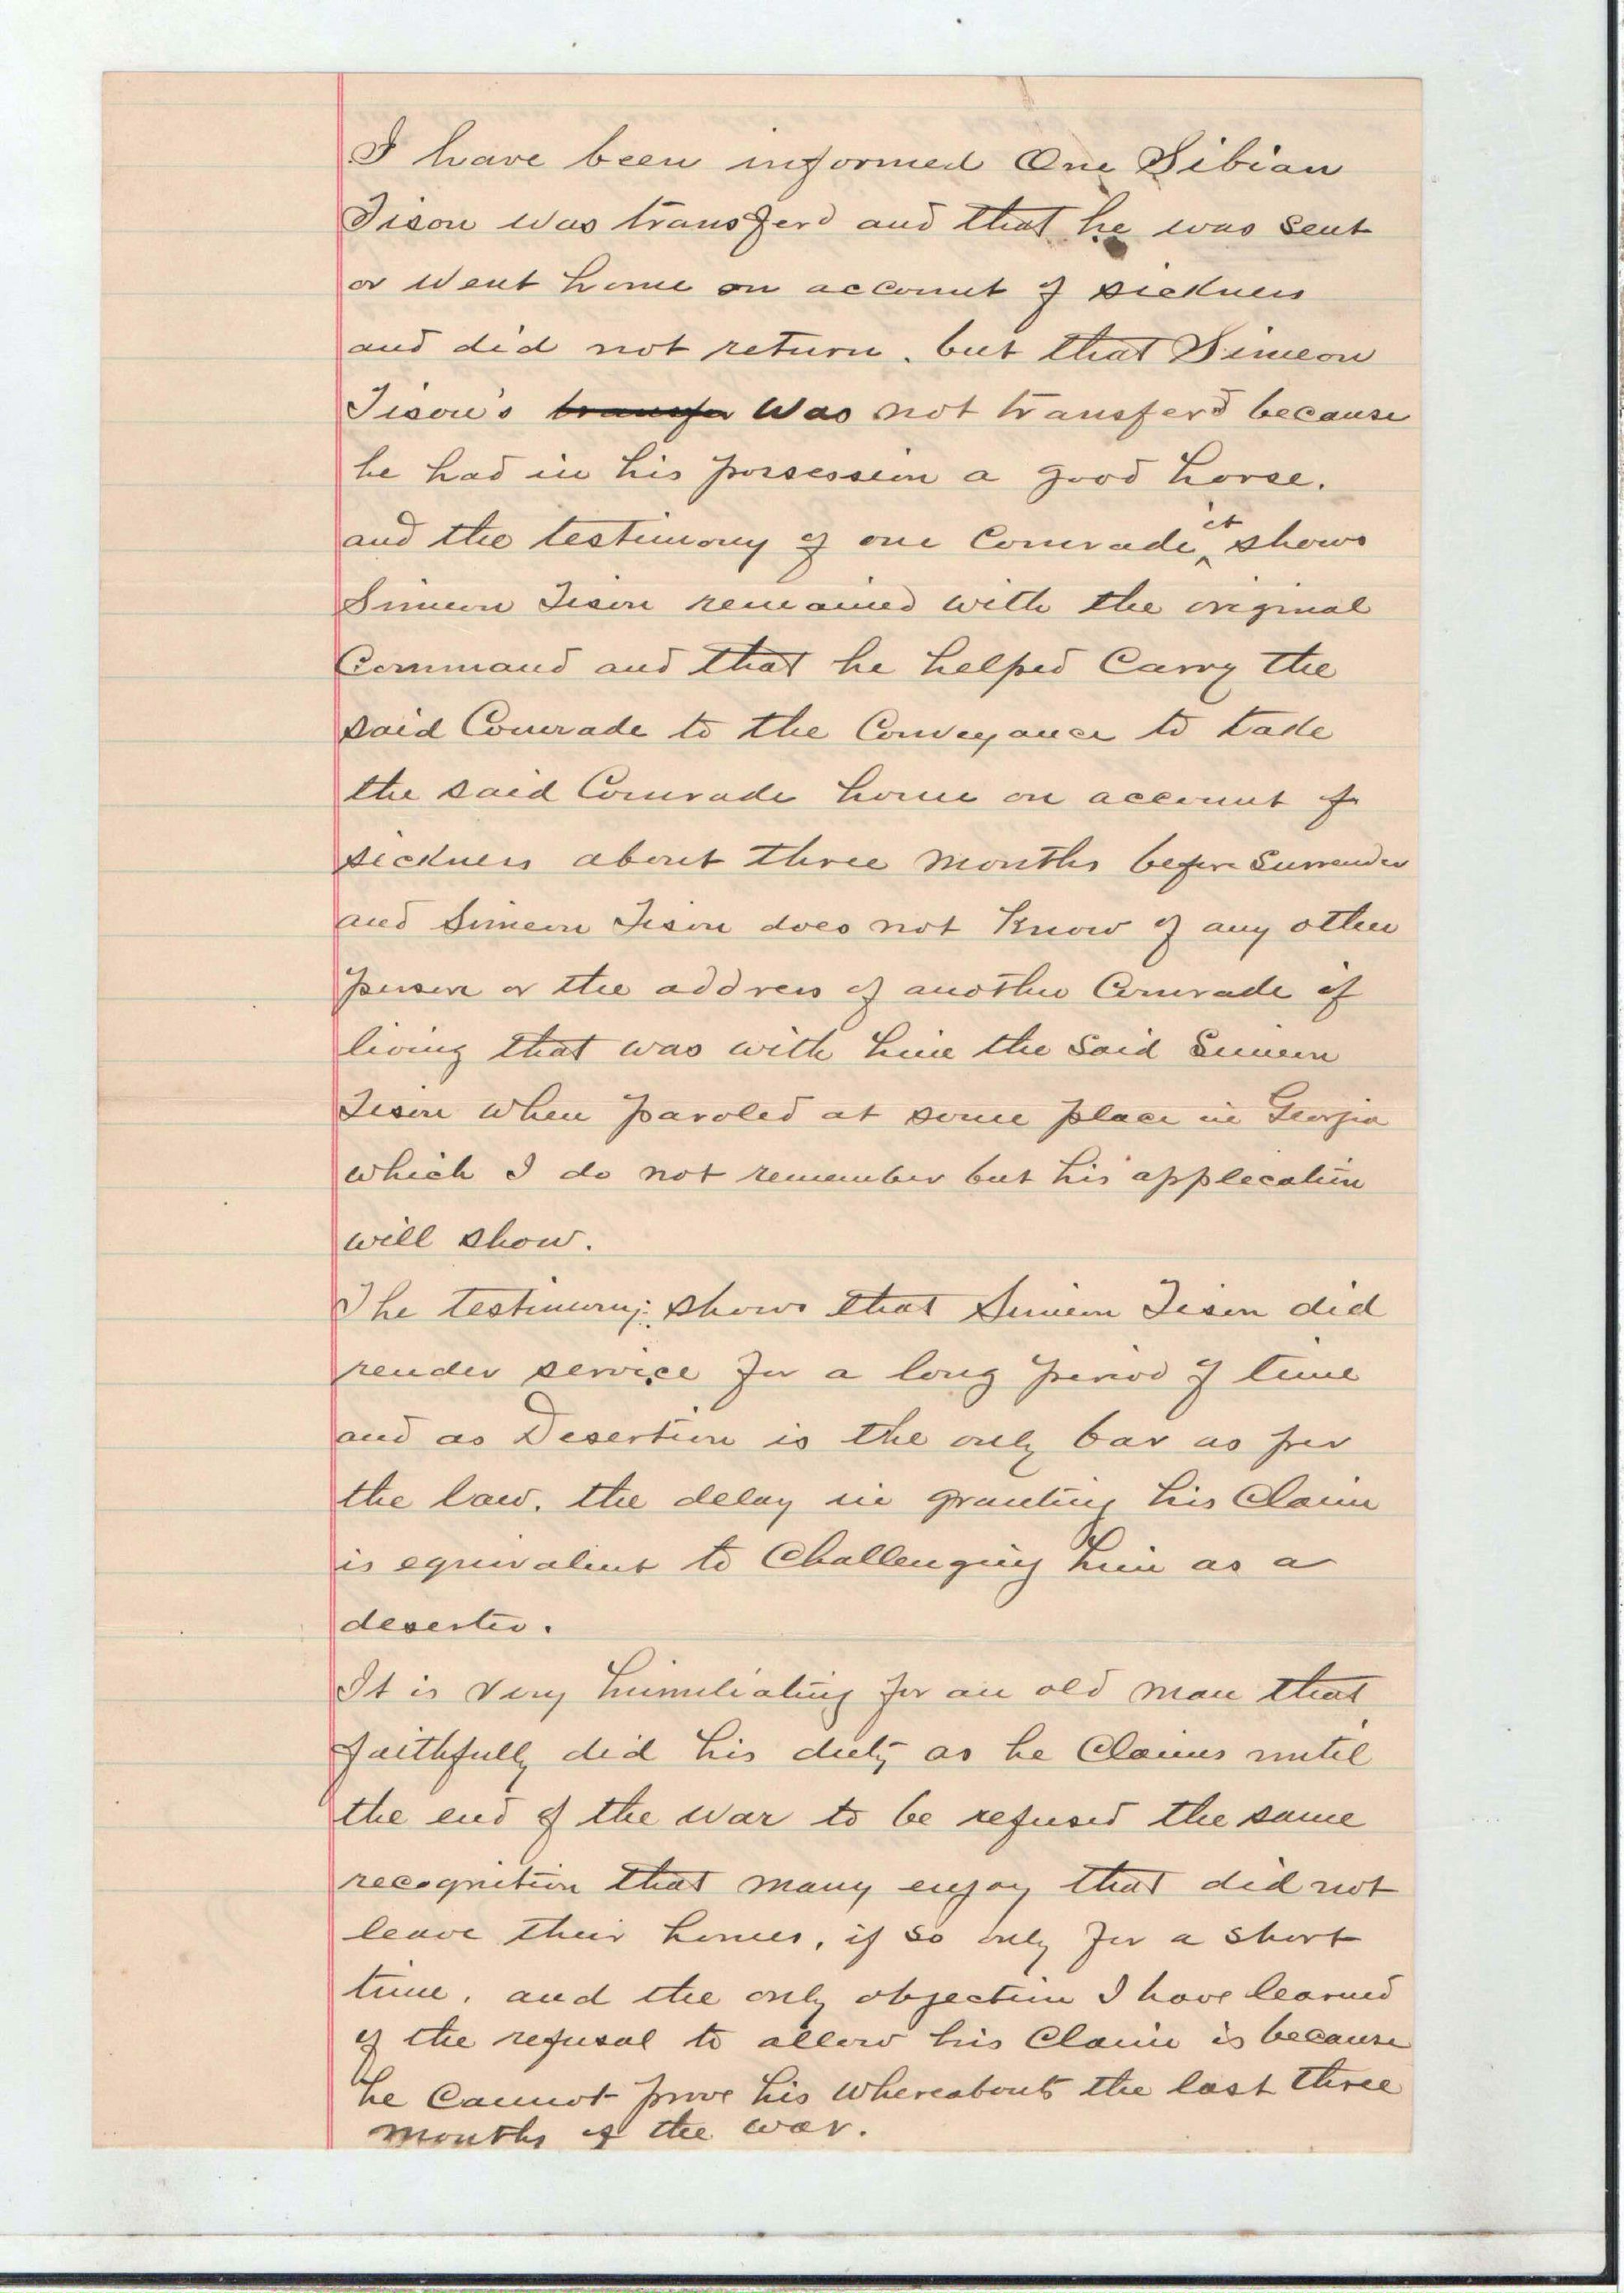 I have been informed One Sibian
Tison was transferd and that he was sent
or went home on account of sickness
and did not return. but that Simeon
Tison's transfer was not transferd because
he had in his possession a good horse.
and the testimony of one Comrade, it shows
Simeon Tison remained with the original
Command and that he helped Carry the
said Comrade to the Conveyance to take
the said Comrade home on account of
sickness about three months before Surrender
and Simeon Tison does not Know of any other
person or the address of another Comrade if
living that was with him the said Simeon
Tison when paroled at some place in Georgia
which I do not remember but his applecation
will show.
The testimony; shows that Simeon Tison did
render service for a long period of time
and as Desertion is the only bar as per
the law. the delay in granting his Claim
is equivalent to Challenging him as a
deserter.
It is very humiliating for an old man that
faithfully did his duty as he Claims until
the end of the war to be refused the same
recognition that many enjoy that did not
leave their homes, if so only for a short
time. and the only objection I have learned
of the refusal to allow his Claim is because
he Cannot prove his whereabouts the last three
months of the war.